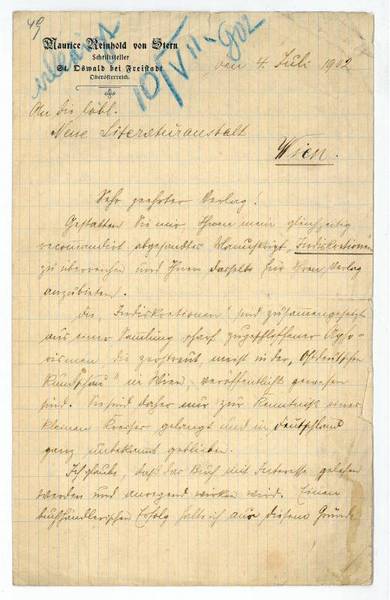 49
Maurice Reinhold von Stern
Schriftsteller
St. Oswald bei Freistadt
Oberösterreich.
erledigt
10/VII 902
den 4. Juli 1902
An die löbl.
Neue Literaturanstalt
Wien.
Sehr geehrter Verlag!
Gestatten Sie mir, Ihnen mein gleichzeitig
recomandirt abgesandtes Manuskript „Indiskretionen“
zu überreichen und Ihnen dasselbe für Ihren Verlag
anzubieten.
Die „Indiskretionen“ sind zusammengesetzt
aus einer Samlung scharf zugeschliffener Apho-
rismen die zerstreut meist in der „Ostdeutschen
Rundschau“ in Wien, veröffentlicht gewesen
sind. Sie sind daher nur zur Kenntniß eines
kleinen Kreises gelangt und in Deutschland
ganz unbekannt geblieben.
Ich glaube, daß das Buch mit Interesse gelesen
werden und anregend wirken wird. Einen
buchhändlerischen Erfolg halte ich aus diesem Grunde